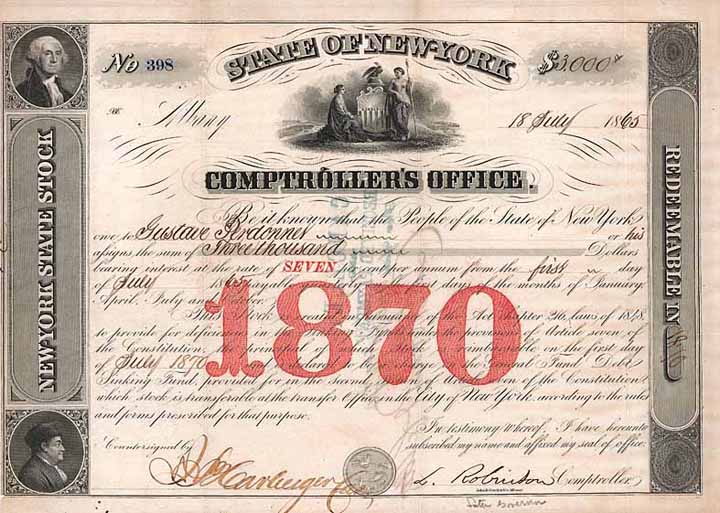 No 398
STATE OF NEW-YORK
$3000
Albany
18 July 1865
COMPTROLLER'S OFFICE.
NEW-YORK STATE STOCK
REDEEMABLE IN
Be it known that the People of the State of New York
owe to Gustave Perdonnet or his
assigns the sum of Three thousand Dollars
bearing interest at the rate of SEVEN per cent per annum from the first day
of July 1865 payable on the first day of the months of January,
April, July and October.
1870
This Stock is created in pursuance of the Act chapter 216, laws of 1848,
to provide for deficiencies in the Sinking Funds under the provisions of Article seven of
the Constitution, the principal of which Stock is reimbursable on the first day
of July 1870 and is declared to be a charge on the General Fund Debt
Sinking Fund, provided for in the second Section of Article seven of the Constitution
which stock is transferable at the transfer Office in the City of New York, according to the rules
and forms prescribed for that purpose.
In testimony whereof, I have hereunto
subscribed my name and affixed my seal of office.
Countersigned by
L. Robinson Comptroller
Later Governor